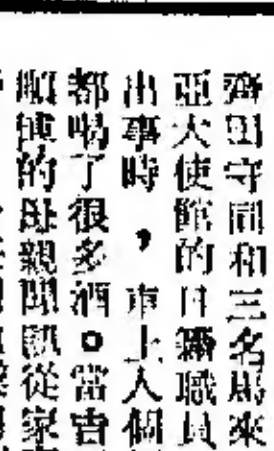 齊田守同和三名馬來
亞大使館的日籍職員
出事時，車上人個
都喝了很多酒。當吉
的母親聞訊從家